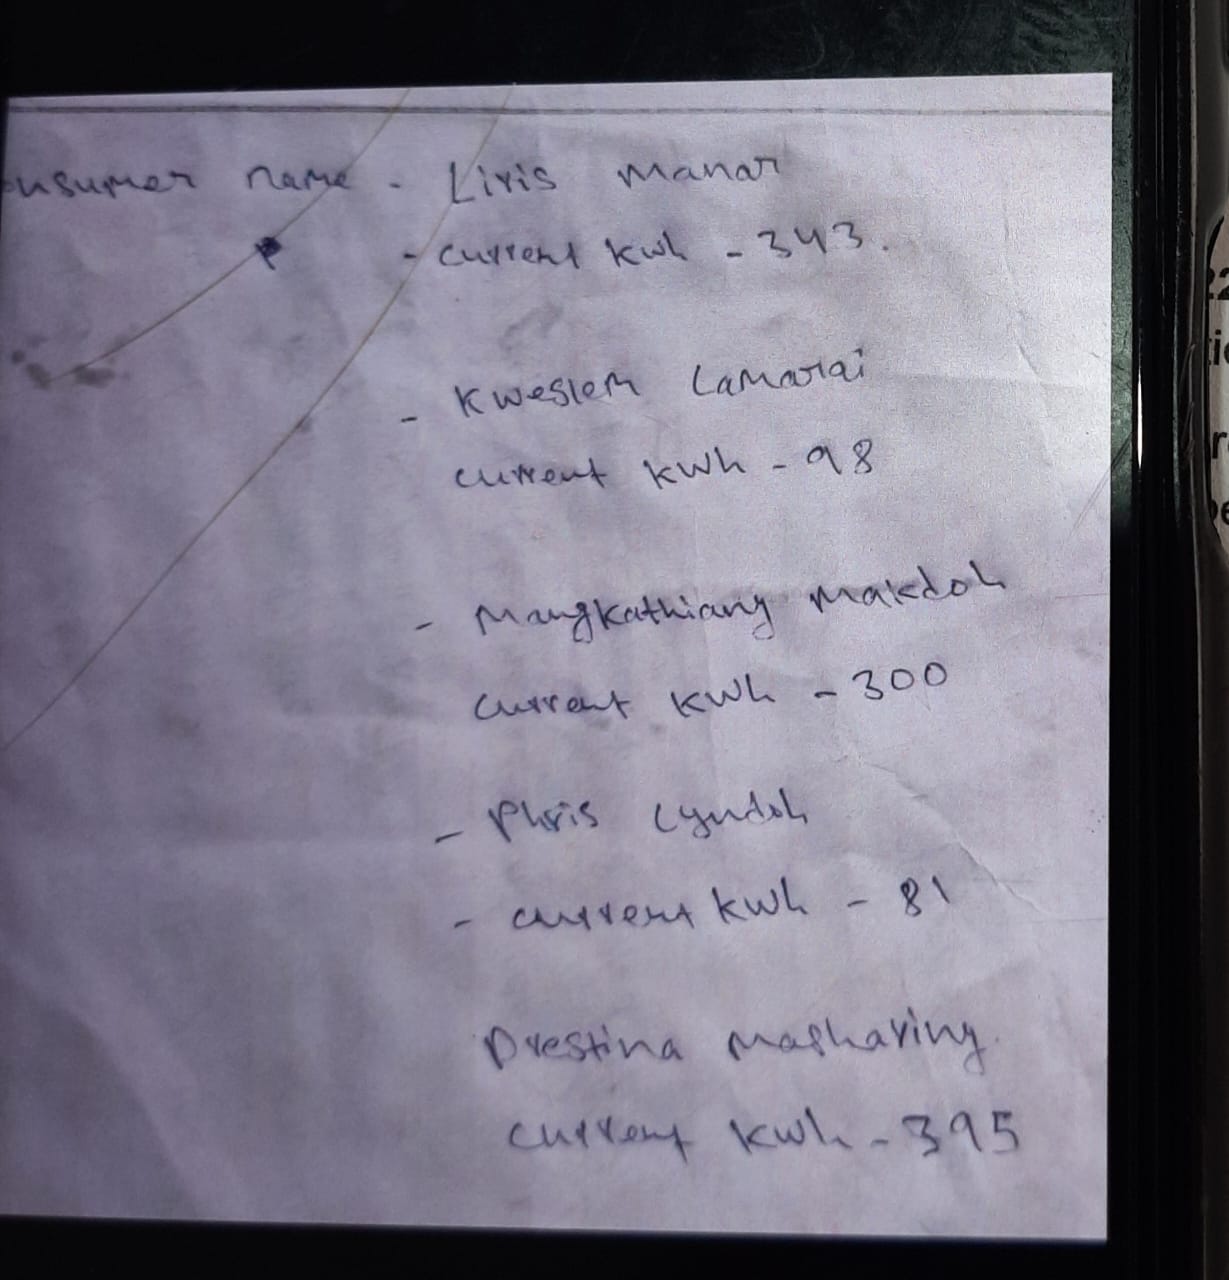 onsumer name - Liris Manar
- current kwh - 343.
- Kweslem Lamarai
current kwh - 98
- Mangkathiang Makdoh
current kwh - 300
- Phris Lyndoh
- current kwh - 81
Drestina Masharing.
current kwh - 395